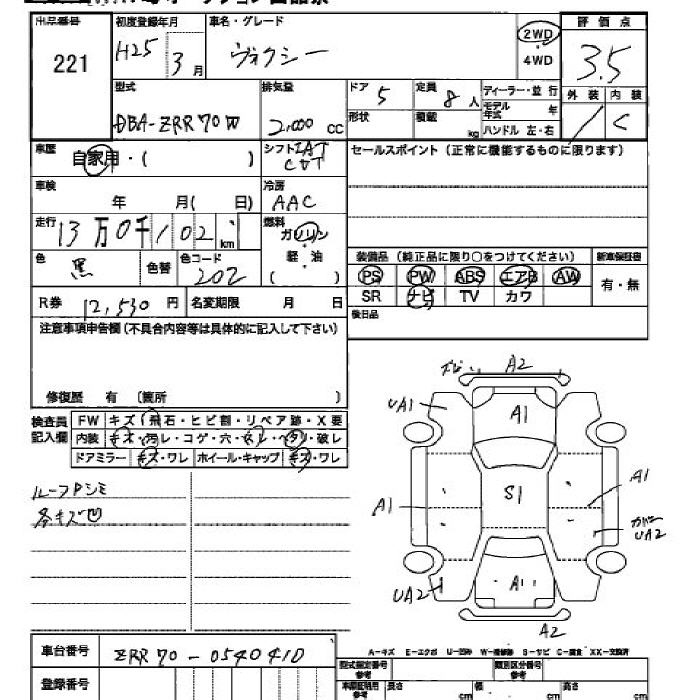 出品番号 初度登録年月 車名・グレード 2WD 評価点
221 H25 3月 ヴォクシー 4WD 3.5
型式 排気量 ドア 5 定員 8人 ディーラー・並 行 外装 内装
DBA-ZRR70W 2,000 cc 形状 積載 kg モデル年式 年 C
ハンドル 左・右
車歴 自家用・( ) シフト IAT CVT セールスポイント(正常に機能するものに限ります)
車検 年 月( 日) 冷房 AAC
走行 13万0千102 km 燃料 ガソリン
軽・油
( )
色 黒 色替 色コード 202 装備品(純正品に限り○をつけてください) 新車保証書
PS PW ABS エアB AW 有・無
R券 12,530円 名変期限 月 日 SR ナビ TV カワ
注意事項申告欄(不具合内容等は具体的に記入して下さい) 後日品
修復歴 有 (箇所 )
検査員記入欄 FW キズ(飛石・ヒビ割・リペア跡・X要
内装 キズ・汚レ・コゲ・穴・ハガレ・ヘタリ・破レ
ドアミラー キズ・ワレ ホイール・キャップ キズ・ワレ
A2
UA1 A1
ルーフ
各キズ凹
S1 A1
A1
UA2
UA2 A1
A2
A-キズ E-エクボ U-凹み W-補修跡 S-サビ C-腐食 XX-交換済
車台番号 ZRR70-0540410 型式指定番号 参考 類別区分番号 参考
登録番号 車庫証明用 参考 長さ cm 幅 cm cm